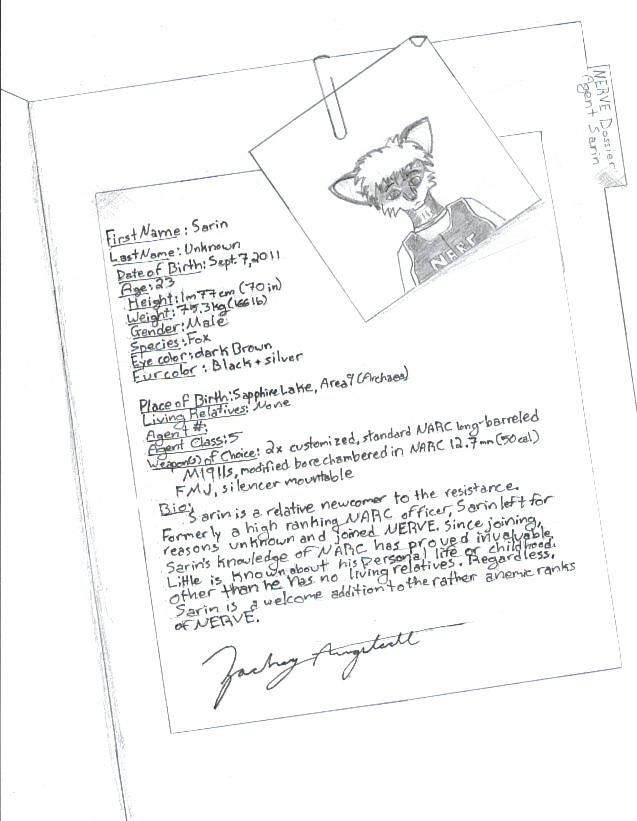 NERVE Dossier
Agent Sarin
NARC
First Name: Sarin
Last Name: Unknown
Date of Birth: Sept. 7, 2011
Age: 23
Height: 1m 77cm (70 in)
Weight: 75.3kg (166 lb)
Gender: Male
Species: Fox
Eye color: dark Brown
Fur color: Black + silver
Place of Birth: Sapphire Lake, Area 9 (Archaea)
Living Relatives: None
Agent #:
Agent Class: 5
Weapon(s) of Choice: 2x customized, standard NARC long-barreled
M1911s, modified bore chambered in NARC 12.7mm (50 cal)
FMJ, silencer mountable
Bio:
Sarin is a relative newcomer to the resistance.
Formerly a high ranking NARC officer, Sarin left for
reasons unknown and joined NERVE. Since joining,
Sarin's knowledge of NARC has proved invaluable.
Little is known about his personal life or childhood,
other than he has no living relatives. Regardless,
Sarin is a welcome addition to the rather anemic ranks
of NERVE.